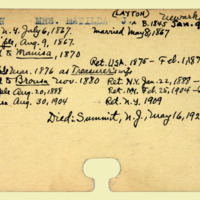 (LAYTON) Newark
N MRS. MATILDA J. B. 1845 Jan. 9
N.Y. July 6, 1867. married May 8, 1867
Aug. 9, 1867.
to Manisa, 1870 Ret. USA. 1875 - Feb. 1
Mar. 1876 as Treasurer's wife
to Brousa Nov. 1880 Ret. N.Y. Jan. 22, 1888 -
Aug. 20, 1888 Ret. Feb. 25, 1904 -
Aug. 30, 1904 Ret. N.Y. 1909
Died - Summit, N.J. May 16, 192